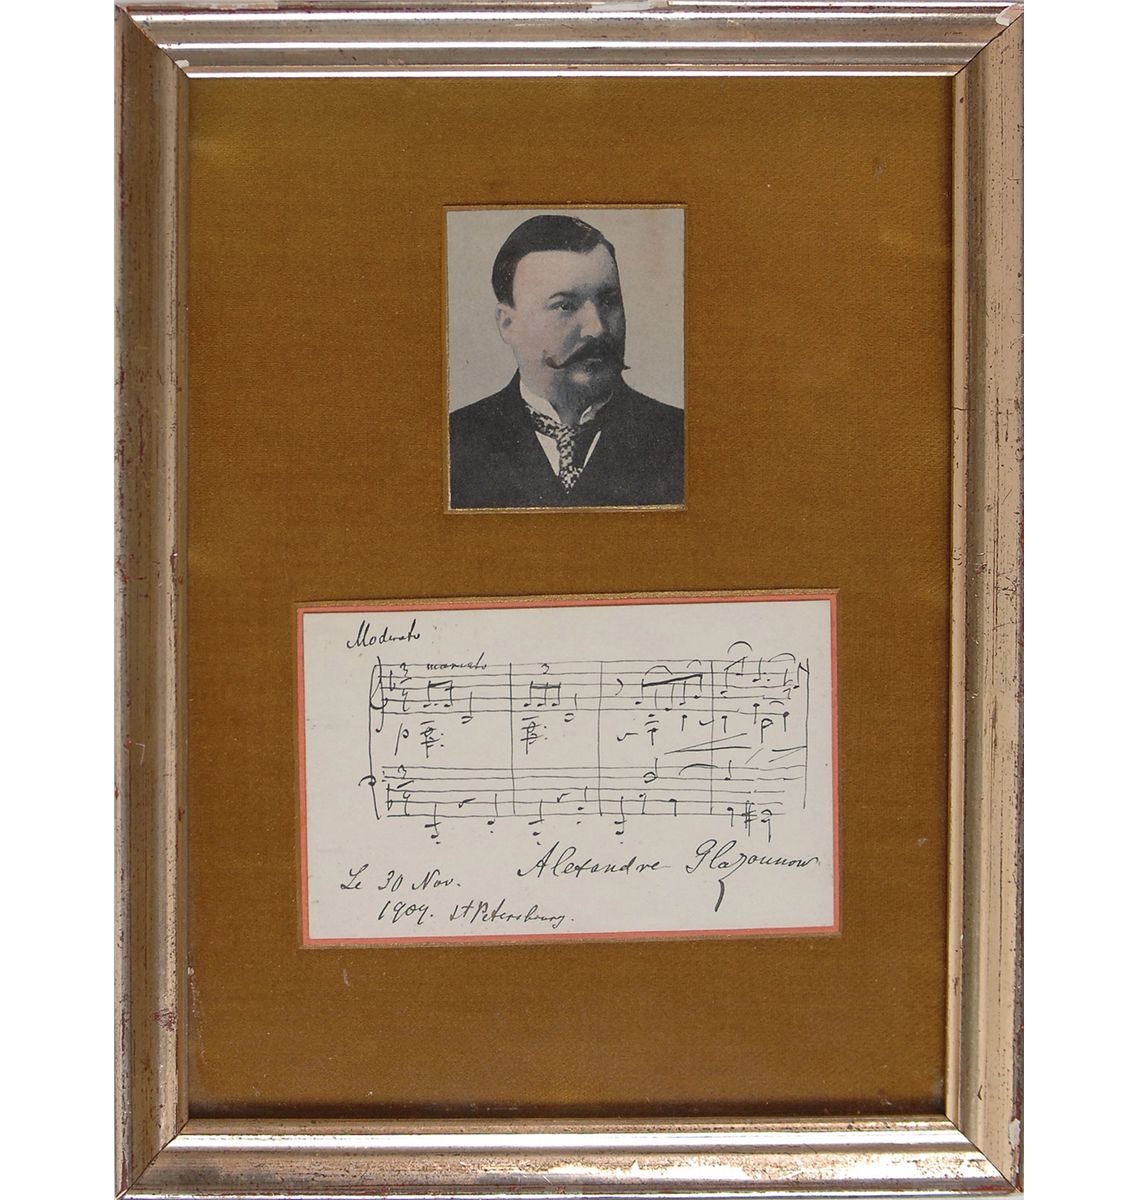 Moderato
3 marcato 3
4
p
3
4
Alexandre Glazounow
Le 30 Nov.
1909. St Petersbourg.